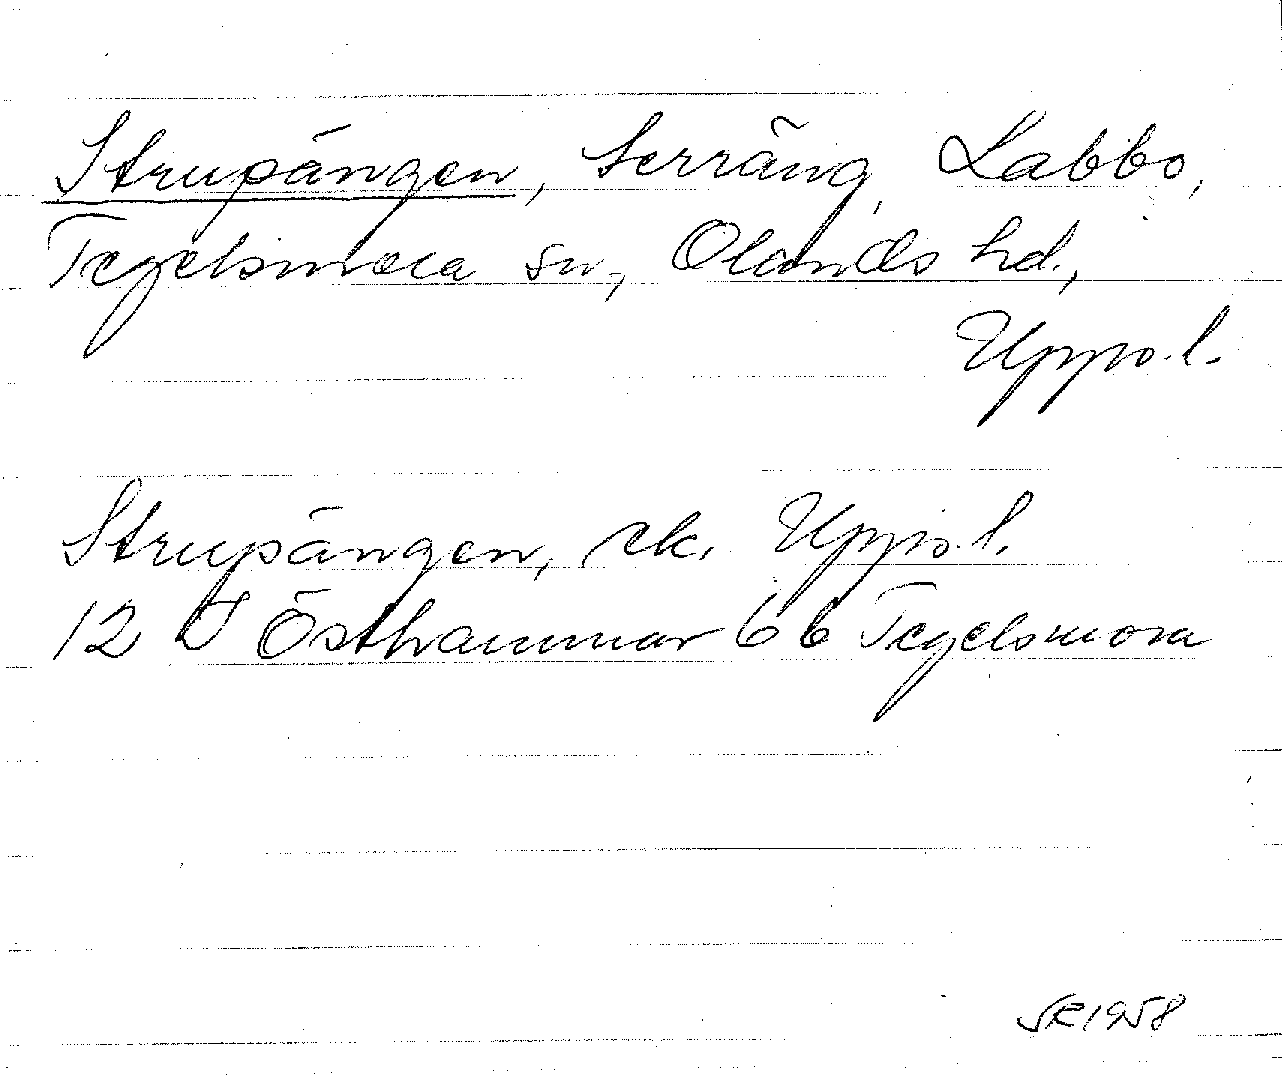 Strupängen, terräng, Labbo,
Tegelsmora sn, Olands hd.,
Upps.l.
Strupängen, ek. Upps.l.
12 I Östhammar 6b Tegelsmora
SR 1958